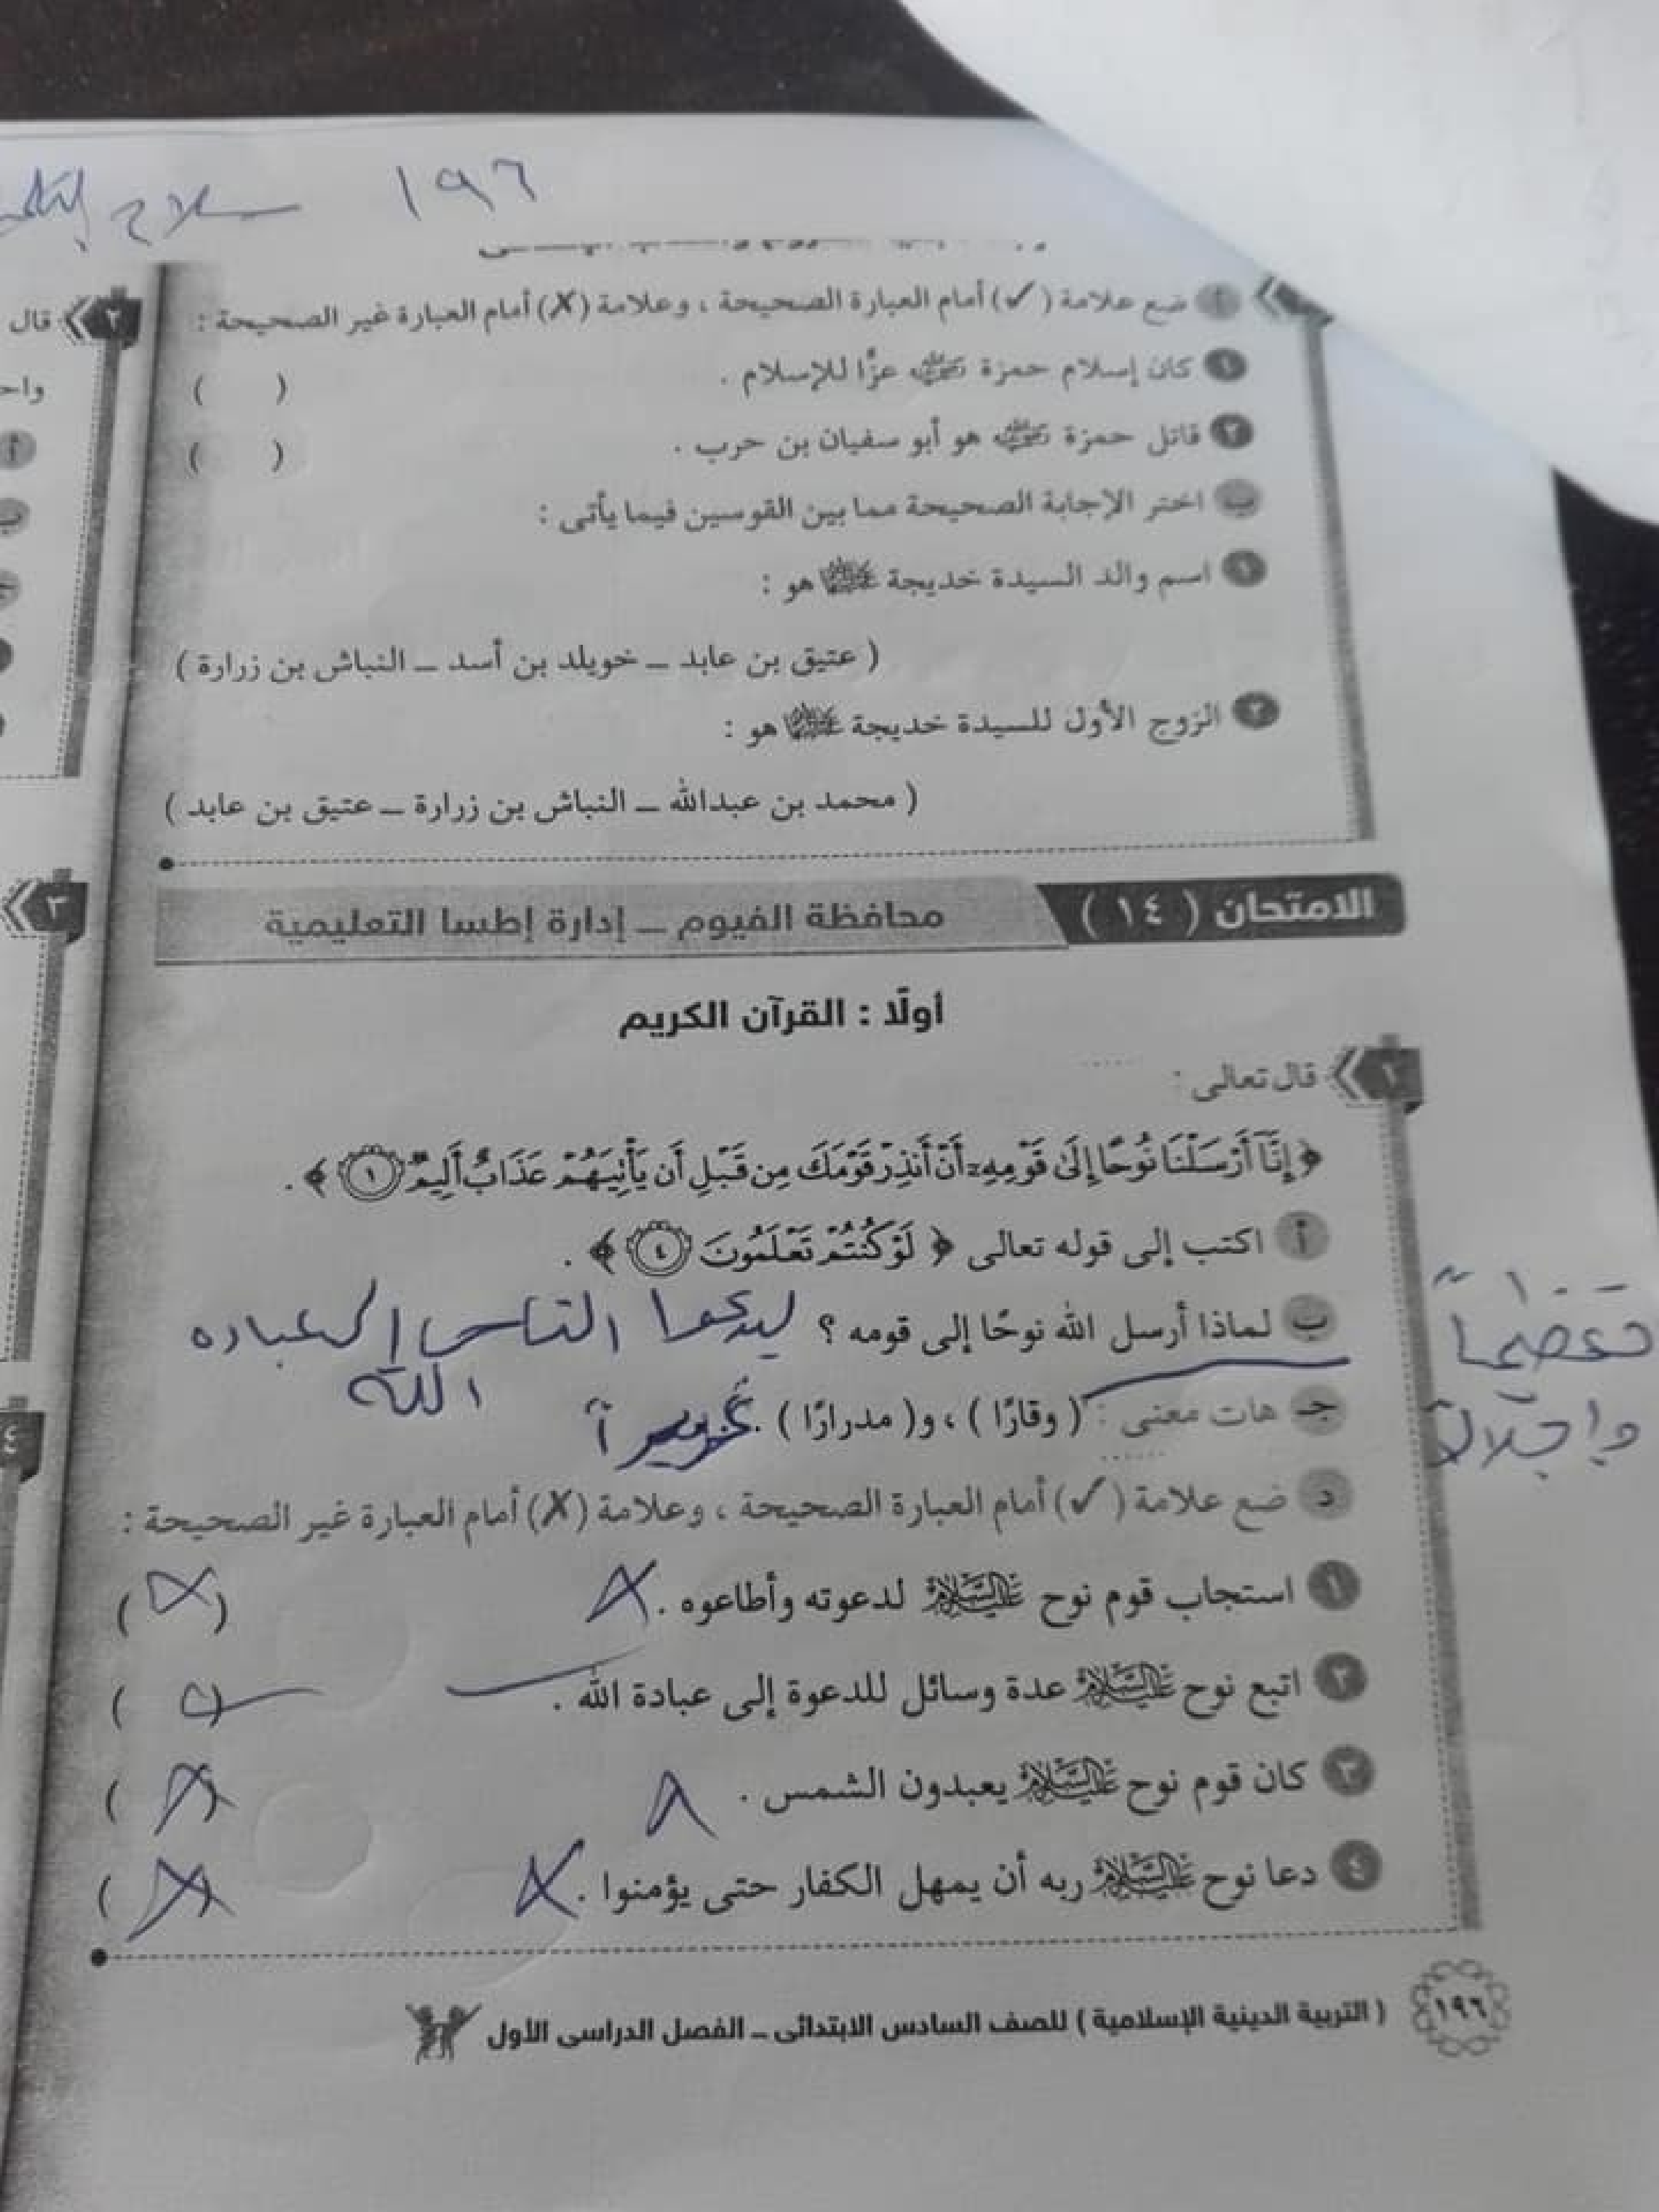 ١٩٦ سلاح التلميذ
أ ضع علامة (✓) أمام العبارة الصحيحة ، وعلامة (✗) أمام العبارة غير الصحيحة :
١ كان إسلام حمزة رضي الله عنه عزًّا للإسلام . ( )
٢ قاتل حمزة رضي الله عنه هو أبو سفيان بن حرب . ( )
ب اختر الإجابة الصحيحة مما بين القوسين فيما يأتى :
١ اسم والد السيدة خديجة رضي الله عنها هو :
( عتيق بن عابد – خويلد بن أسد – النباش بن زرارة )
٢ الزوج الأول للسيدة خديجة رضي الله عنها هو :
( محمد بن عبدالله – النباش بن زرارة – عتيق بن عابد )
الامتحان ( ١٤ ) محافظة الفيوم – إدارة إطسا التعليمية
أولًا : القرآن الكريم
١ قال تعالى :
﴿ إِنَّآ أَرْسَلْنَا نُوحًا إِلَىٰ قَوْمِهِۦٓ أَنْ أَنذِرْ قَوْمَكَ مِن قَبْلِ أَن يَأْتِيَهُمْ عَذَابٌ أَلِيمٌ ١ ﴾ .
أ اكتب إلى قوله تعالى ﴿ لَوْ كُنتُمْ تَعْلَمُونَ ٤ ﴾ .
ب لماذا أرسل الله نوحًا إلى قومه ؟ ليدعوا الناس إلى عباده
الله
جـ هات معنى : ( وقارًا ) ، و( مدرارًا ) . غزيراً
تعضيماً
وإجلالاً
د ضع علامة (✓) أمام العبارة الصحيحة ، وعلامة (✗) أمام العبارة غير الصحيحة :
١ استجاب قوم نوح عليه السلام لدعوته وأطاعوه . ✗ (✗)
٢ اتبع نوح عليه السلام عدة وسائل للدعوة إلى عبادة الله . (✓)
٣ كان قوم نوح عليه السلام يعبدون الشمس . ✗ (✗)
٤ دعا نوح عليه السلام ربه أن يمهل الكفار حتى يؤمنوا . ✗ (✗)
١٩٦ ( التربية الدينية الإسلامية ) للصف السادس الابتدائى – الفصل الدراسى الأول
٢ قال
واحد
أ
ب
جـ
٣
٤